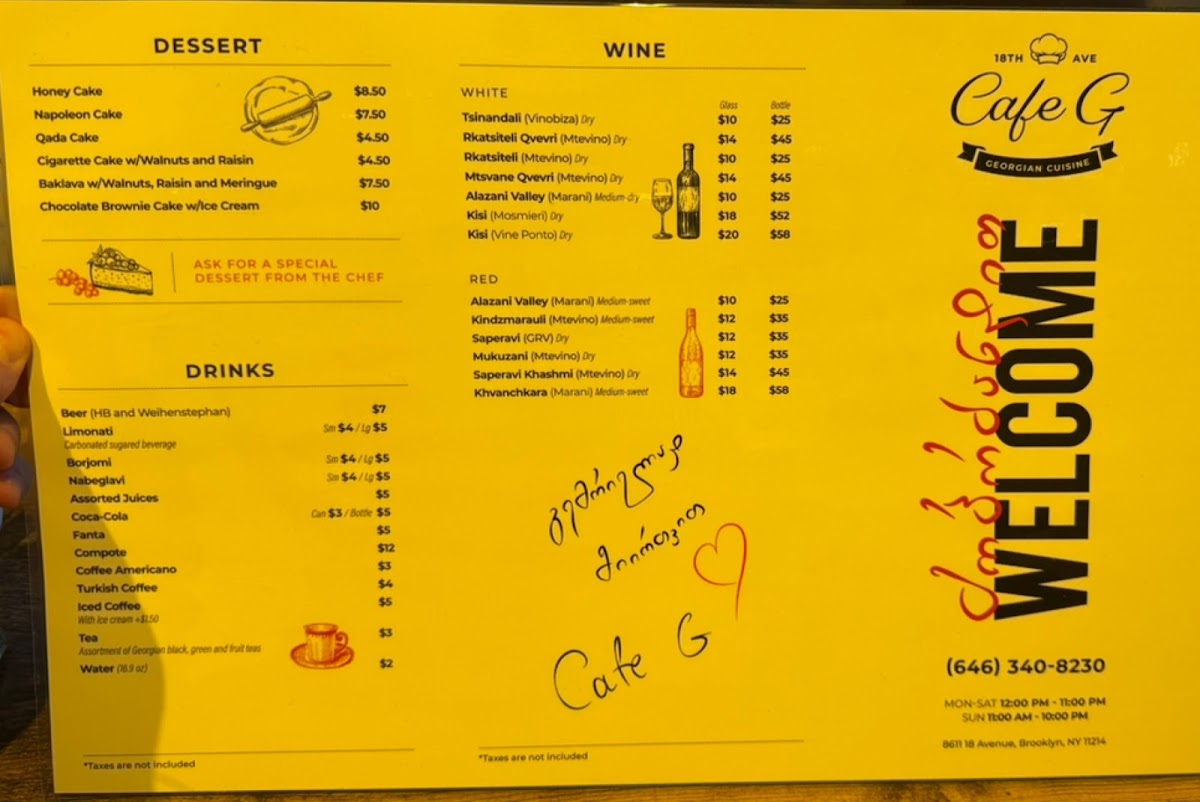 DESSERT
Honey Cake $8.50
Napoleon Cake $7.50
Qada Cake $4.50
Cigarette Cake w/Walnuts and Raisin $4.50
Baklava w/Walnuts, Raisin and Meringue $7.50
Chocolate Brownie Cake w/Ice Cream $10
ASK FOR A SPECIAL
DESSERT FROM THE CHEF
DRINKS
Beer (HB and Weihenstephan) $7
Limonati Sm $4 / Lg $5
Carbonated sugared beverage
Borjomi Sm $4 / Lg $5
Nabeglavi Sm $4 / Lg $5
Assorted Juices $5
Coca-Cola Can $3 / Bottle $5
Fanta $5
Compote $12
Coffee Americano $3
Turkish Coffee $4
Iced Coffee $5
With Ice cream +$1.50
Tea $3
Assortment of Georgian black, green and fruit teas
Water (16.9 oz) $2
*Taxes are not included
WINE
WHITE
Glass Bottle
Tsinandali (Vinobiza) Dry $10 $25
Rkatsiteli Qvevri (Mtevino) Dry $14 $45
Rkatsiteli (Mtevino) Dry $10 $25
Mtsvane Qvevri (Mtevino) Dry $14 $45
Alazani Valley (Marani) Medium-dry $10 $25
Kisi (Mosmieri) Dry $18 $52
Kisi (Vine Ponto) Dry $20 $58
RED
Alazani Valley (Marani) Medium-sweet $10 $25
Kindzmarauli (Mtevino) Medium-sweet $12 $35
Saperavi (GRV) Dry $12 $35
Mukuzani (Mtevino) Dry $12 $35
Saperavi Khashmi (Mtevino) Dry $14 $45
Khvanchkara (Marani) Medium-sweet $18 $58
გემრიელად
მიირთვით
Cafe G
*Taxes are not included
18TH AVE
Cafe G
GEORGIAN CUISINE
WELCOME
(646) 340-8230
MON-SAT 12:00 PM - 11:00 PM
SUN 11:00 AM - 10:00 PM
8611 18 Avenue, Brooklyn, NY 11214